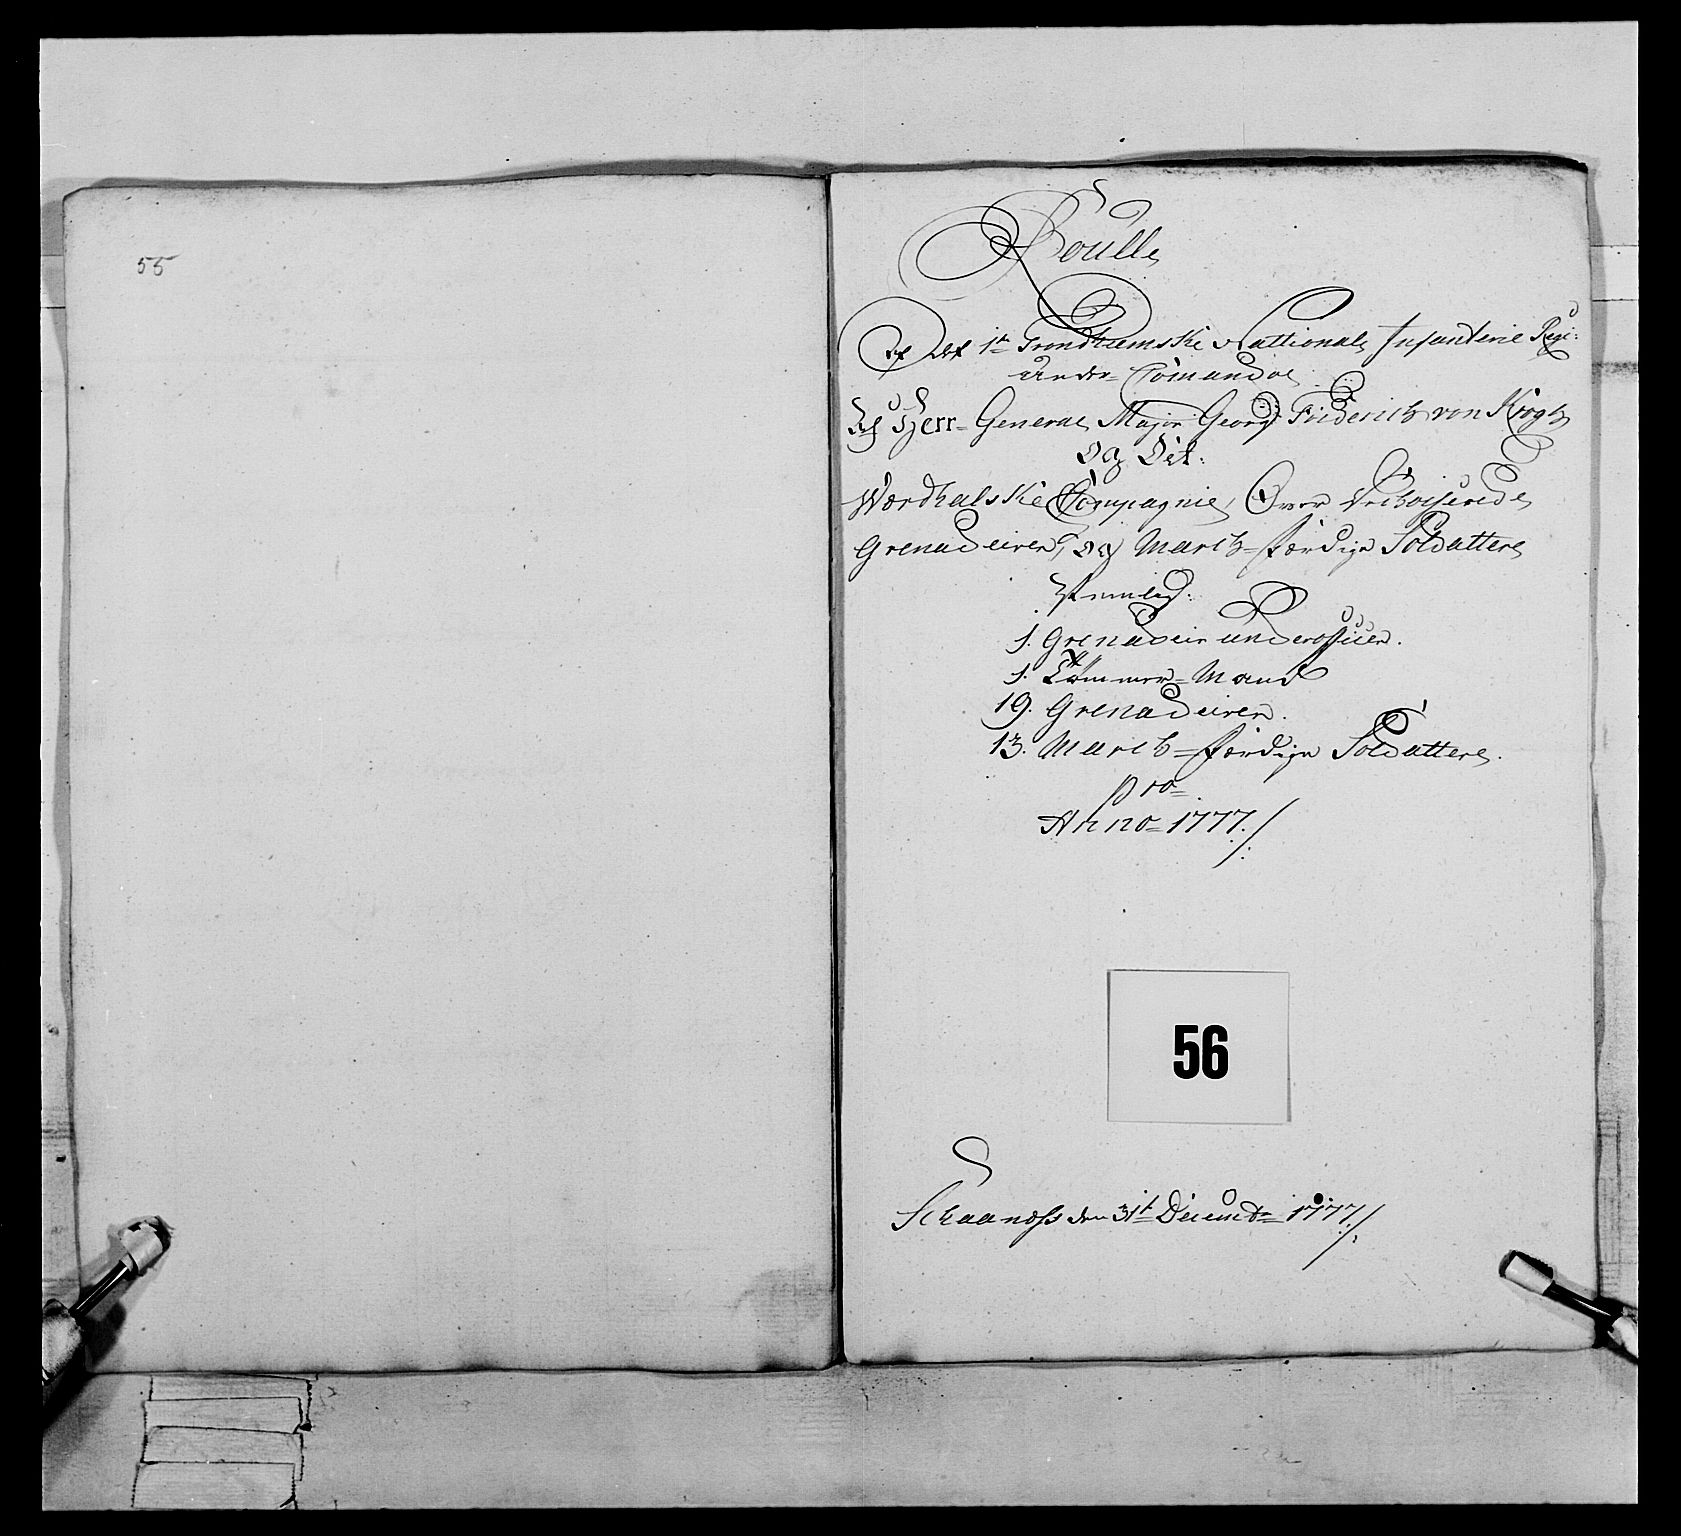 55
Roulle
Af Det 1te Trondhiemske Nattional Infanterie Regi:
under Comando
Af Herr General Major Georg Friderich von Krogh
og Det:
Wærdhalske Compagnie, Over
Grenadeirer, og March-færdige Soldattere
Nemlig:
1. Grenadeir underofficer.
1. Tømmer-Mand
19. Grenadeirer.
13. March-færdige Soldattere.
pro
Anno 1777./.
56
den 31te Decembr 1777./.